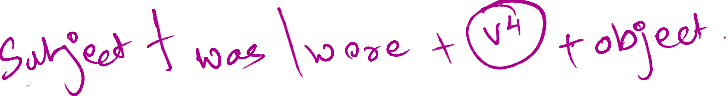 Subject + was / were + V4 + object.